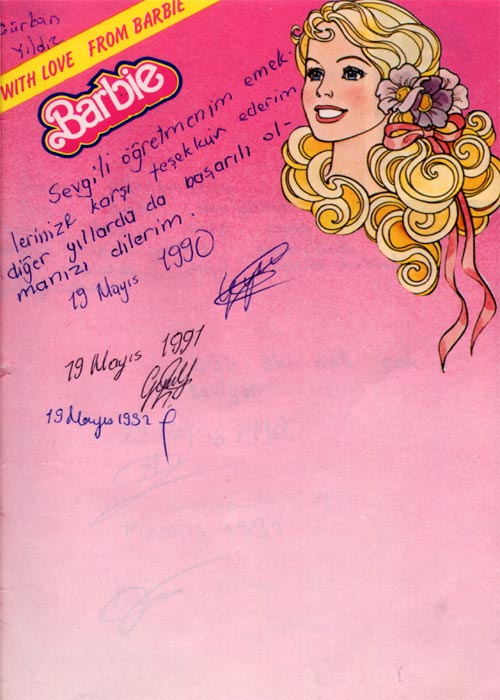 Gürkan
Yıldız
WITH LOVE FROM BARBIE
Barbie
Sevgili öğretmenim emek-
lerinize karşı teşekkür ederim
diğer yıllarda da başarılı ol-
manızı dilerim.
19 Mayıs 1990
19 Mayıs 1991
19 Mayıs 1992